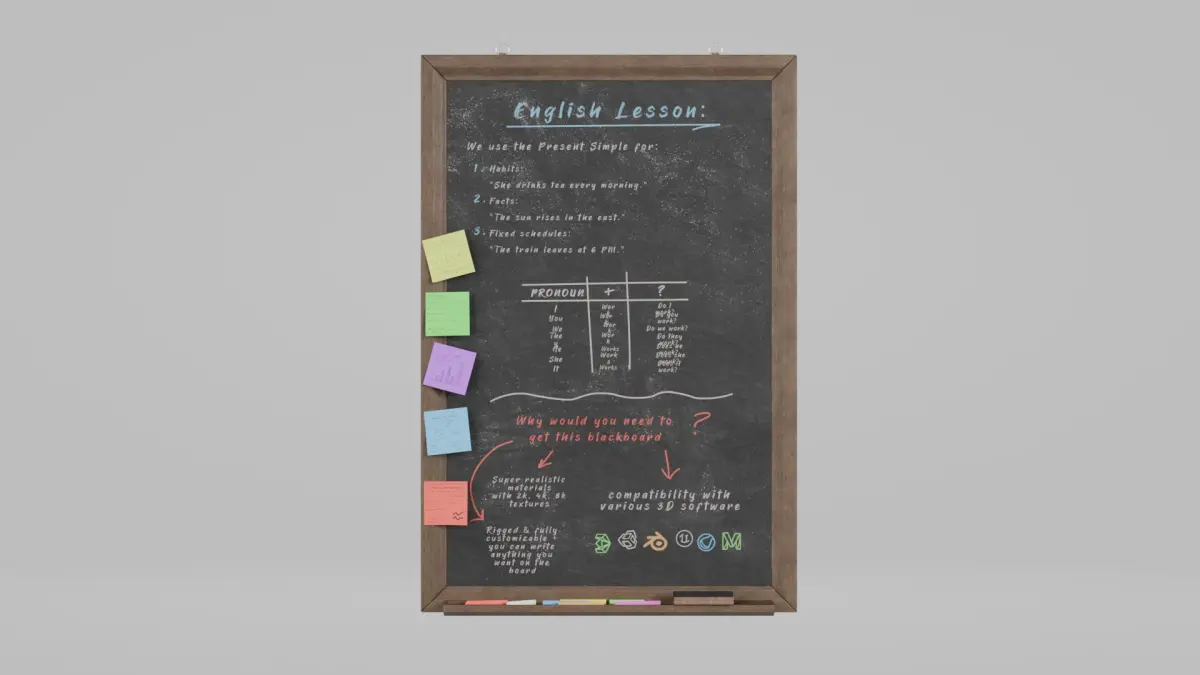 English Lesson:
We use the Present Simple for:
1. Habits:
"She drinks tea every morning."
2. Facts:
"The sun rises in the east."
3. Fixed schedules:
"The train leaves at 6 PM."
PRONOUN + ?
I
You
We
The
y
He
She
It
Wor
k
Wor
k
Wor
k
Wor
k
Works
Work
s
Works
Do I
work?
Do you
work?
Do we work?
Do they
work?
Does he
work?
Does she
work?
Does it
work?
Why would you need to
get this blackboard ?
Super realistic
materials
with 2k, 4k, 8k
textures
compatibility with
various 3D software
Rigged & fully
customizable -
you can write
anything you
want on the
board